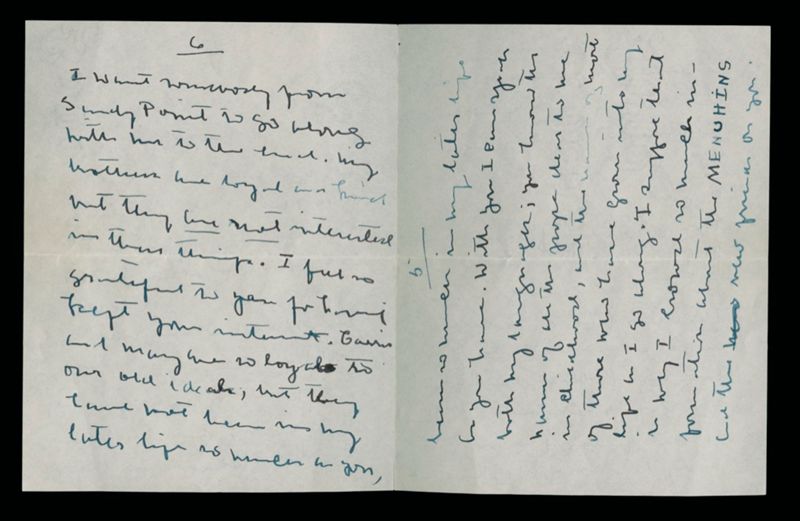 6
I want somebody from
Sandy Point to go along
with me to the end. My
brothers are loyal and kind
but they are not interested
in these things. I feel so
grateful to you for having
kept your interest. Carrie
and Mary are so loyal to
our old ideals, but they
have not been in my
later life so much as you,
5
been so much in my later life
as you have. With you I can speak
both my languages; you know the
names of all the people dear to me
in childhood, and the names of most
of those who have grown into my
life as I go along. I suppose that
is why I crowd so much in-
formation about the MENUHINS
and the new friends on you.